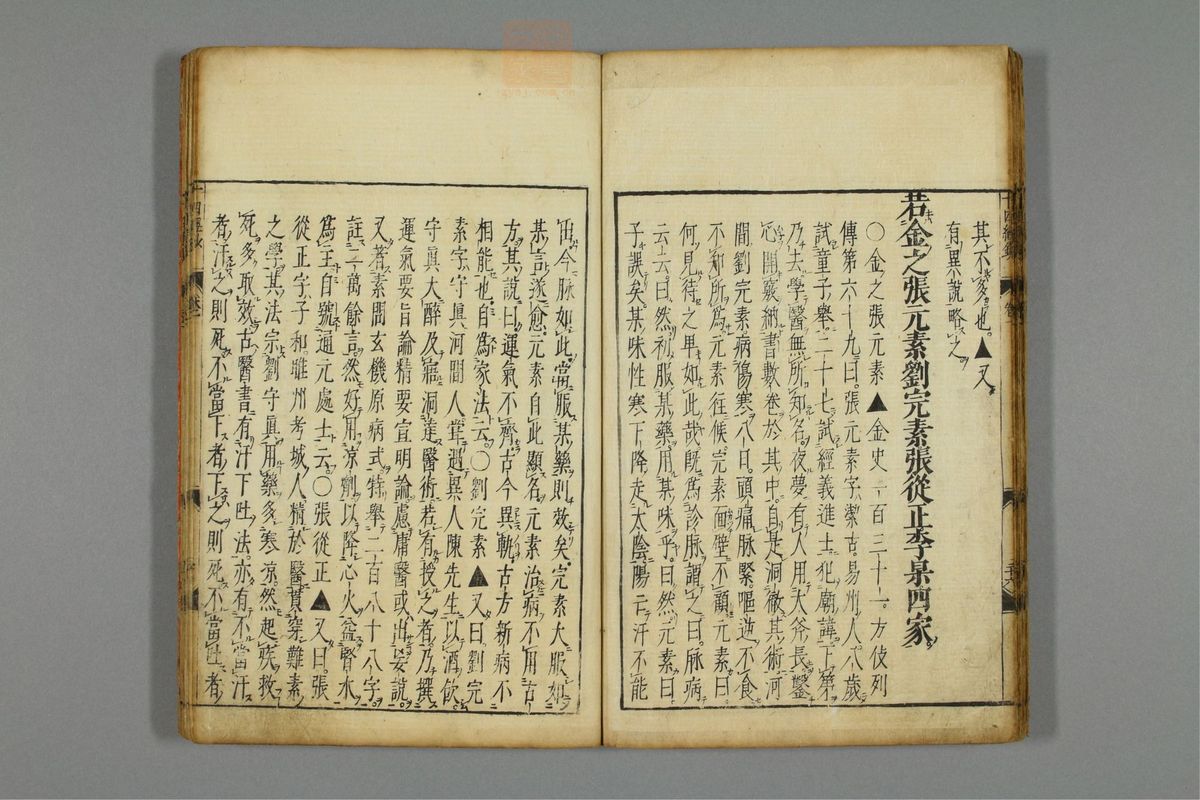 其不多也▲又
有異說略之
若金之張元素劉完素張從正李杲四家
○金之張元素▲金史一百三十一方伎列
傳第六十九曰張元素字潔古易州人八歲
試童子舉二十七試經義進士犯廟諱下第
乃去學醫無所知名夜夢有人用大斧長鑿
心開竅納書數卷於其中自是洞徹其術河
間劉完素病傷寒八日頭痛脉緊嘔逆不食
不知所爲元素往候完素面壁不顧元素曰
何見待之卑如此哉既爲診脉謂之曰脉病
云云曰然初服某藥用某味乎曰然元素曰
子誤矣某味性寒下降走太陰陽亡汗不能
出今脉如此當服某藥則效矣完素大服如
其言遂愈元素自此顯名元素治病不用古
方其說曰運氣不齊古今異軌古方新病不
相能也自爲家法云○劉完素▲又曰劉完
素字守眞河間人嘗遇異人陳先生以酒飲
守眞大醉及寤洞達醫術若有授之者乃撰
運氣要旨論精要宣明論慮庸醫或出妄說
又著素問玄機原病式特舉二百八十八字
註二萬餘言然好用凉劑以降心火益腎水
爲主自號通元處士云○張從正▲又曰張
從正字子和睢州考城人精於醫貫穿難素
之學其法宗劉守眞用藥多寒凉然起疾救
死多取效古醫書有汗下吐法亦有不當汗
者汗之則死不當下者下之則死不當吐者